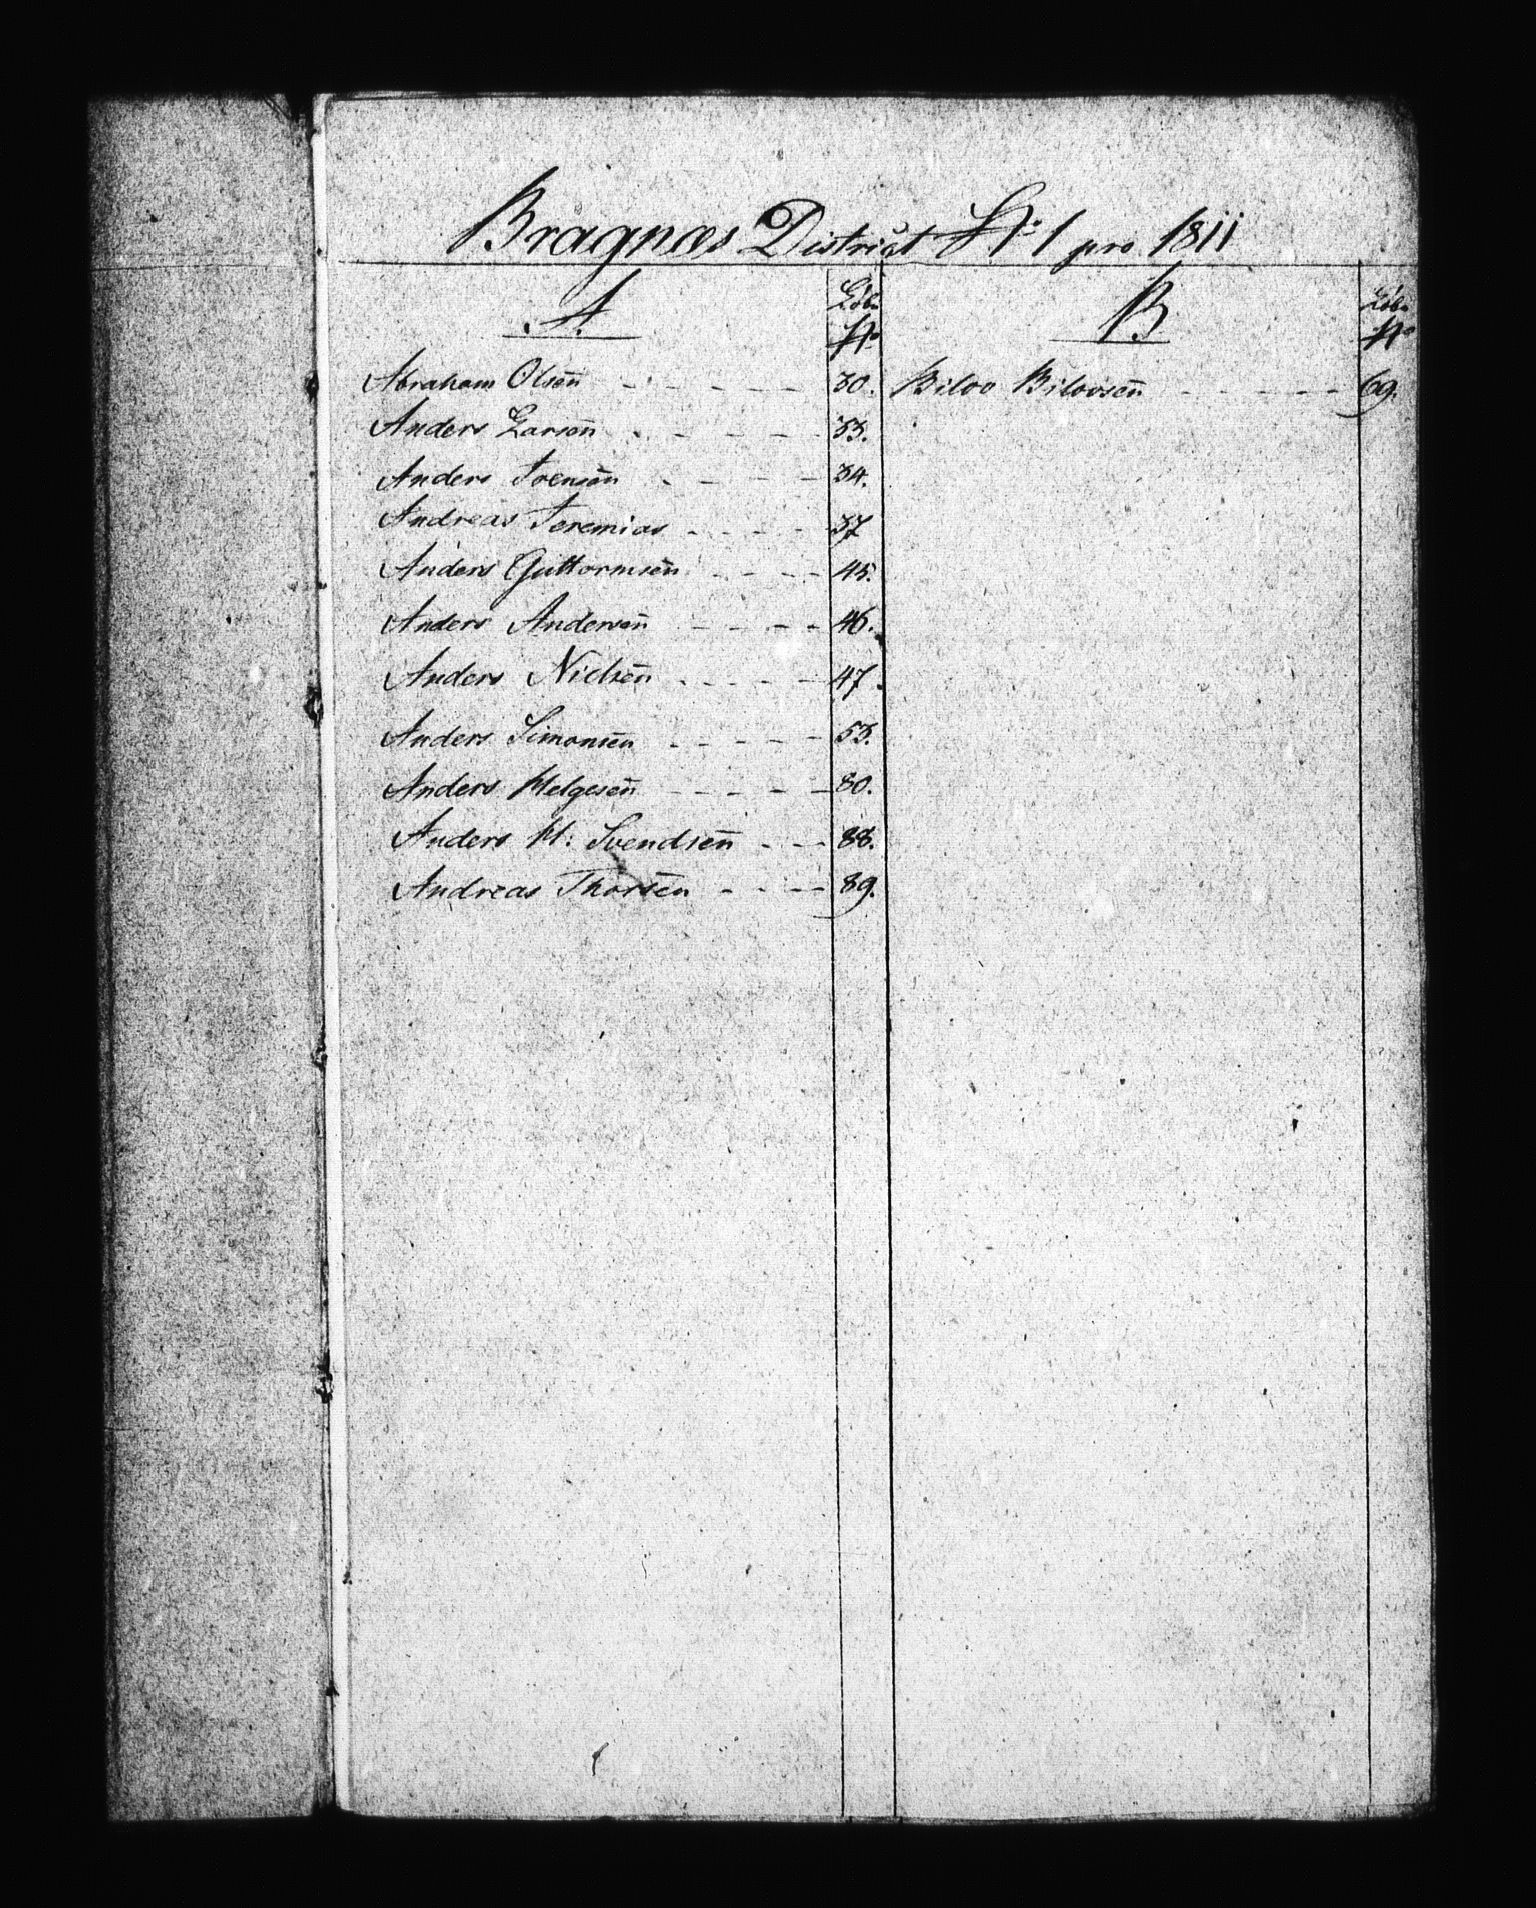 Bragnæs District No 1 pro 1811
A.
Löb. No
Abraham Olsen̄ 30.
Anders Larsen̄ 33.
Anders Svensen̄ 34.
Andreas Jeremias 37
Anders Guttormsen̄ 45.
Anders Andersen̄ 46.
Anders Nielsen̄ 47.
Anders Simonsen̄ 53.
Anders Helgesen̄ 80.
Anders H: Svendsen̄ 88.
Andreas Thorsen̄ 89.
B.
Löb. No
Biloo Biloosen̄ 69.